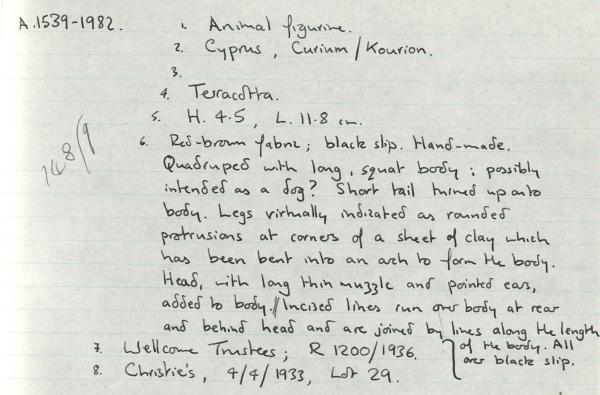 A.1539-1982.
1. Animal figurine.
2. Cyprus, Curium/Kourion.
3.
4. Terracotta.
5. H. 4.5, L. 11.8 cm.
6. Red-brown fabric; black slip. Hand-made.
Quadruped with long, squat body; possibly
intended as a dog? Short tail turned up onto
body. Legs virtually indicated as rounded
protrusions at corners of a sheet of clay which
has been bent into an arch to form the body.
Head, with long thin muzzle and pointed ears,
added to body.//Incised lines run over body at rear
and behind head and are joined by lines along the length
of the body. All
over black slip.
7. Wellcome Trustees; R 1200/1936.
8. Christie's, 4/4/1933, Lot 29.